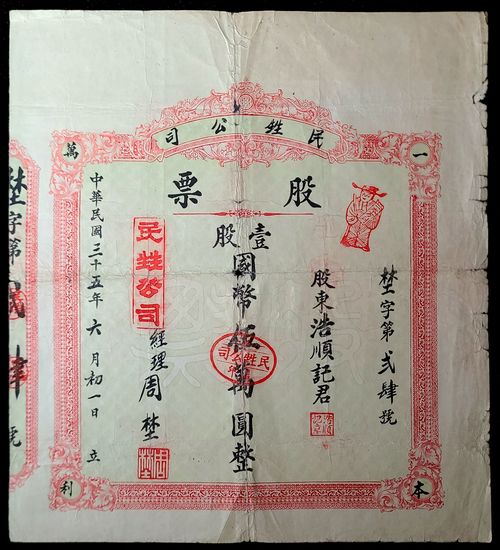 民甡公司
一本萬利
股票
埜字第弍肆號
股東浩順記君
壹股
國幣伍萬圓整
民甡公司
民甡公司
經理周埜
周埜
中華民國三十五年六月初一日立
埜字第弍肆號